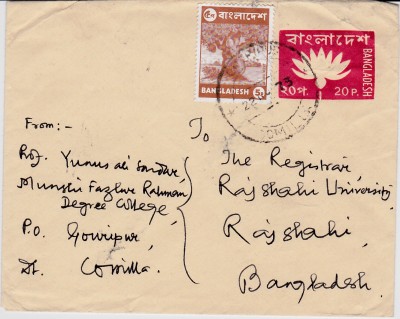 ৫প বাংলাদেশ
BANGLADESH 5P
বাংলাদেশ
BANGLADESH
২০প. 20 P.
22 73
From:-
Prof. Yunus Ali Sardar,
Munshi Fazlur Rahman
Degree College,
P.O. Gouripur,
Dt. Comilla.
To
The Registrar
Rajshahi University,
Rajshahi,
Bangladesh.